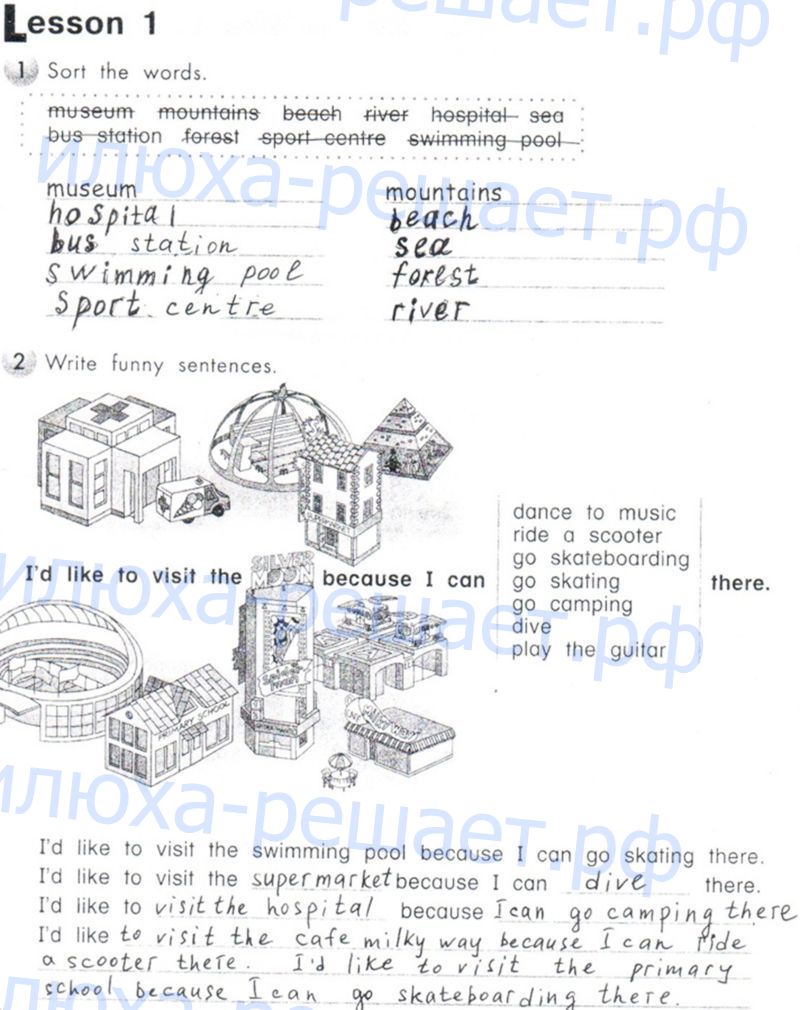 Lesson 1
1 Sort the words.
museum mountains beach river hospital sea
bus station forest sport centre swimming pool
museum mountains
hospital beach
bus station sea
swimming pool forest
sport centre river
2 Write funny sentences.
SUPERMARKET
dance to music
ride a scooter
go skateboarding
I'd like to visit the SILVER MOON because I can go skating there.
go camping
dive
play the guitar
PRIMARY SCHOOL
I'd like to visit the swimming pool because I can go skating there.
I'd like to visit the supermarket because I can dive there.
I'd like to visit the hospital because I can go camping there
I'd like to visit the cafe milky way because I can ride
a scooter there. I'd like to visit the primary
school because I can go skateboarding there.
илюха-решает.рф